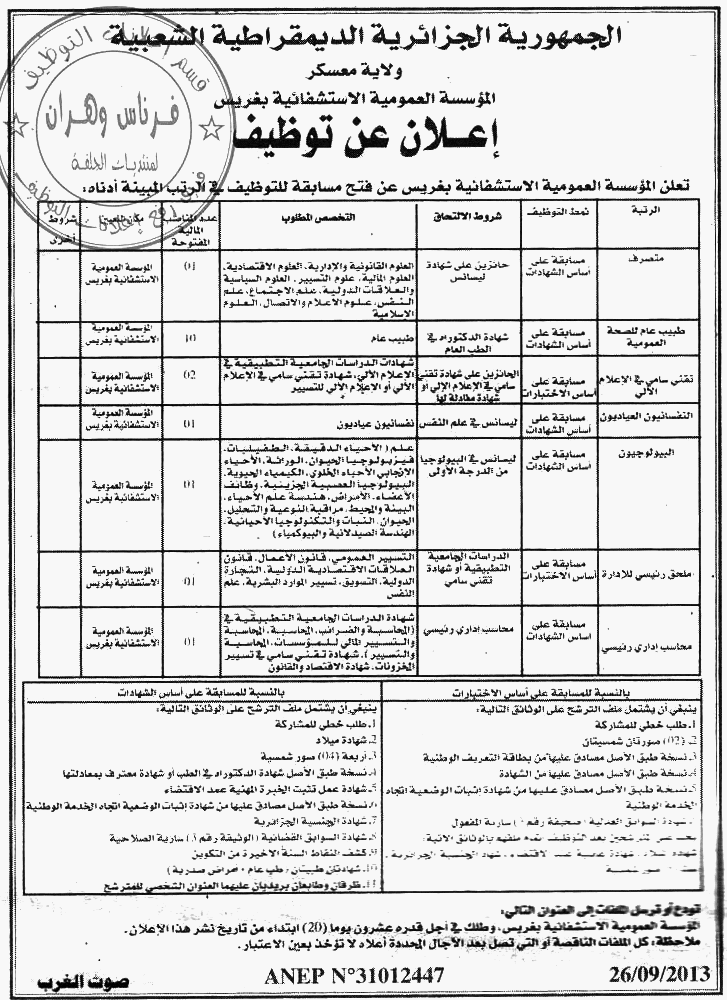 الجمهورية الجزائرية الديمقراطية الشعبية
ولاية معسكر
المؤسسة العمومية الاستشفائية بغريس
إعلان عن توظيف
قسم إعلانات التوظيف
فرناس وهران
لمنتديات الجلفة
تعلن المؤسسة العمومية الاستشفائية بغريس عن فتح مسابقة للتوظيف في الرتب المبينة أدناه:
الرتبة نمط التوظيف شروط الالتحاق التخصص المطلوب عدد المناصب المالية المفتوحة مكان التعيين شروط أخرى
متصرف
مسابقة على أساس الشهادات
حائزين على شهادة ليسانس
العلوم القانونية والإدارية، العلوم الاقتصادية،
العلوم المالية، علوم التسيير، العلوم السياسية
والعلاقات الدولية، علم الاجتماع، علم
النفس، علوم الاعلام والاتصال، العلوم
الاسلامية
01
المؤسسة العمومية الاستشفائية بغريس
طبيب عام للصحة العمومية
مسابقة على أساس الشهادات
شهادة الدكتوراه في الطب العام
طبيب عام
10
المؤسسة العمومية الاستشفائية بغريس
تقني سامي في الإعلام الآلي
مسابقة على أساس الاختبارات
الحائزين على شهادة تقني سامي في الإعلام الآلي أو شهادة معادلة لها
شهادات الدراسات الجامعية التطبيقية في
الإعلام الآلي، شهادة تقني سامي في الإعلام
الآلي أو الاعلام الآلي للتسيير
02
المؤسسة العمومية الاستشفائية بغريس
النفسانيون العياديون
مسابقة على أساس الشهادات
ليسانس في علم النفس
نفسانيون عياديون
01
المؤسسة العمومية الاستشفائية بغريس
البيولوجيون
مسابقة على أساس الشهادات
ليسانس في البيولوجيا من الدرجة الأولى
علم (الأحياء الدقيقة، الطفيليات،
فيزيولوجيا الحيوان، الوراثة، الأحياء
الانجابي الأحياء الخلوي، الكيمياء الحيوية،
البيولوجيا العصبية الجزيئية، وظائف
الأعضاء، الأمراض، هندسة علم الأحياء،
البيئة والمحيط، مراقبة النوعية والتحليل،
الحيوان، النبات والتكنولوجيا الأحيائية،
الهندسة الصيدلانية والبيوكمياء)
01
المؤسسة العمومية الاستشفائية بغريس
ملحق رئيسي للإدارة
مسابقة على أساس الاختبارات
الدراسات الجامعية التطبيقية أو شهادة تقني سامي
التسيير العمومي، قانون الأعمال، قانون
العلاقات الاقتصادية الدولية، التجارة
الدولية، التسويق، تسيير الموارد البشرية، علم
النفس
01
المؤسسة العمومية الاستشفائية بغريس
محاسب إداري رئيسي
مسابقة على أساس الشهادات
محاسب إداري رئيسي
شهادة الدراسات الجامعية التطبيقية في
(المحاسبة والضرائب، المحاسبة، المحاسبة
والتسيير المالي للمؤسسات، المحاسبة
والتسيير)، شهادة تقني سامي في تسيير
المخزونات، شهادة الاقتصاد والقانون
01
المؤسسة العمومية الاستشفائية بغريس
بالنسبة للمسابقة على أساس الاختبارات
ينبغي أن يشتمل ملف الترشح على الوثائق التالية:
1. طلب خطي للمشاركة
2. (02) صورتان شمسيتان
3. نسخة طبق الأصل مصادق عليها من بطاقة التعريف الوطنية
4. نسخة طبق الأصل مصادق عليها من الشهادة
5. نسخة طبق الأصل مصادق عليها من شهادة إثبات الوضعية اتجاه
الخدمة الوطنية
شهادة السوابق العدلية (صحيفة رقم) سارية المفعول
بالنسبة للمسابقة على أساس الشهادات
ينبغي أن يشتمل ملف الترشح على الوثائق التالية:
1. طلب خطي للمشاركة
2. شهادة ميلاد
3. أربعة (04) صور شمسية
4. نسخة طبق الأصل شهادة الدكتوراه في الطب أو شهادة معترف بمعادلتها
5. شهادة عمل تثبت الخبرة المهنية عند الاقتضاء
6. نسخة طبق الأصل مصادق عليها من شهادة إثبات الوضعية اتجاه الخدمة الوطنية
7. شهادة الجنسية الجزائرية
8. شهادة السوابق القضائية (الوثيقة رقم) سارية الصلاحية
9. كشف النقاط السنة الأخيرة من التكوين
10. شهادتان طبيتان (طب عام - أمراض صدرية)
11. ظرفان وطابعان بريديان عليهما العنوان الشخصي للمترشح
تودع أو ترسل الملفات إلى العنوان التالي:
المؤسسة العمومية الاستشفائية بغريس، وذلك في أجل قدره عشرون يوما (20) ابتداء من تاريخ نشر هذا الإعلان.
ملاحظة: كل الملفات الناقصة أو التي تصل بعد الآجال المحددة أعلاه لا تؤخذ بعين الاعتبار.
صوت الغرب ANEP N°31012447 26/09/2013